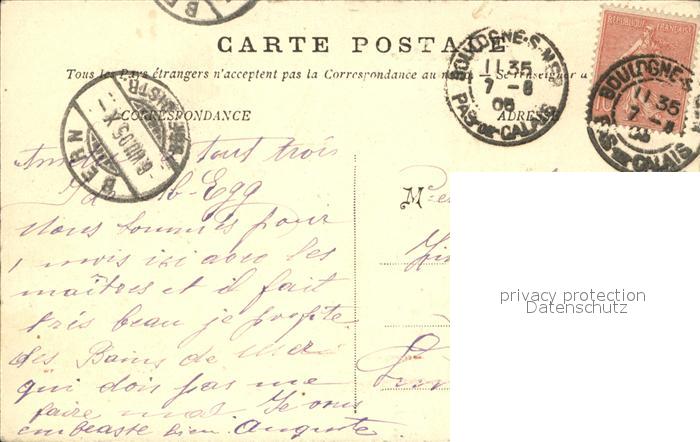 CARTE POSTALE
Tous les Pays étrangers n'acceptent pas la Correspondance au Se renseigner a
CORRESPONDANCE
ADRESSE
RÉPUBLIQUE FRANÇAISE
BOULOGNE-S-MER
11 35
7 - 8
05
PAS-DE-CALAIS
BOULOGNE-S
11 35
7 - 8
PAS-DE-CALAIS
BERN
à tout trois
Egg
Nous sommes pour
1 mois ici avec les
maîtres et il fait
très beau je profite
des Bains de Mer
qui dois pas me
faire mal Je vous
embrasse bien Auguste
M
privacy protection
Datenschutz